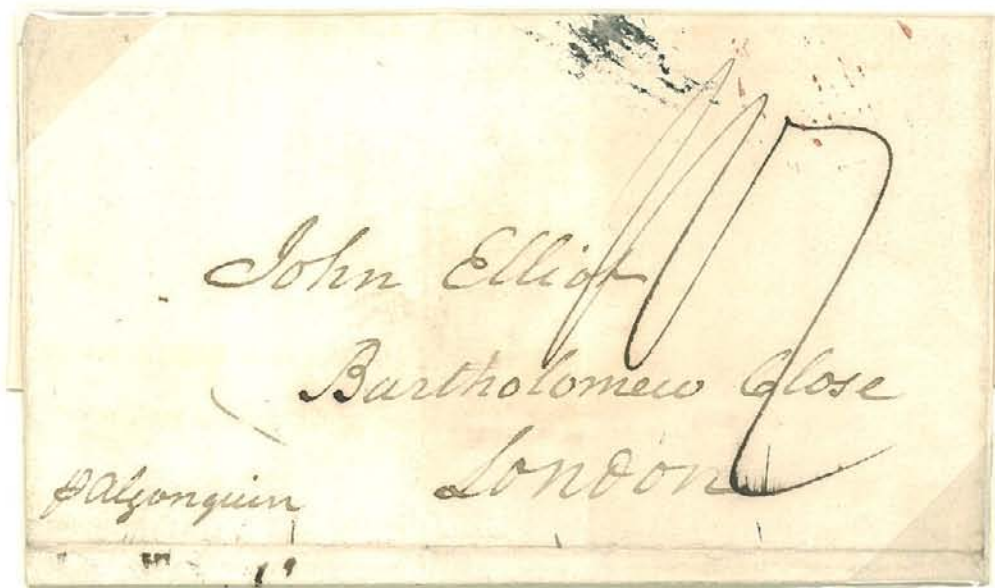 John Elliot
Bartholomew Close
London
p Algonquin